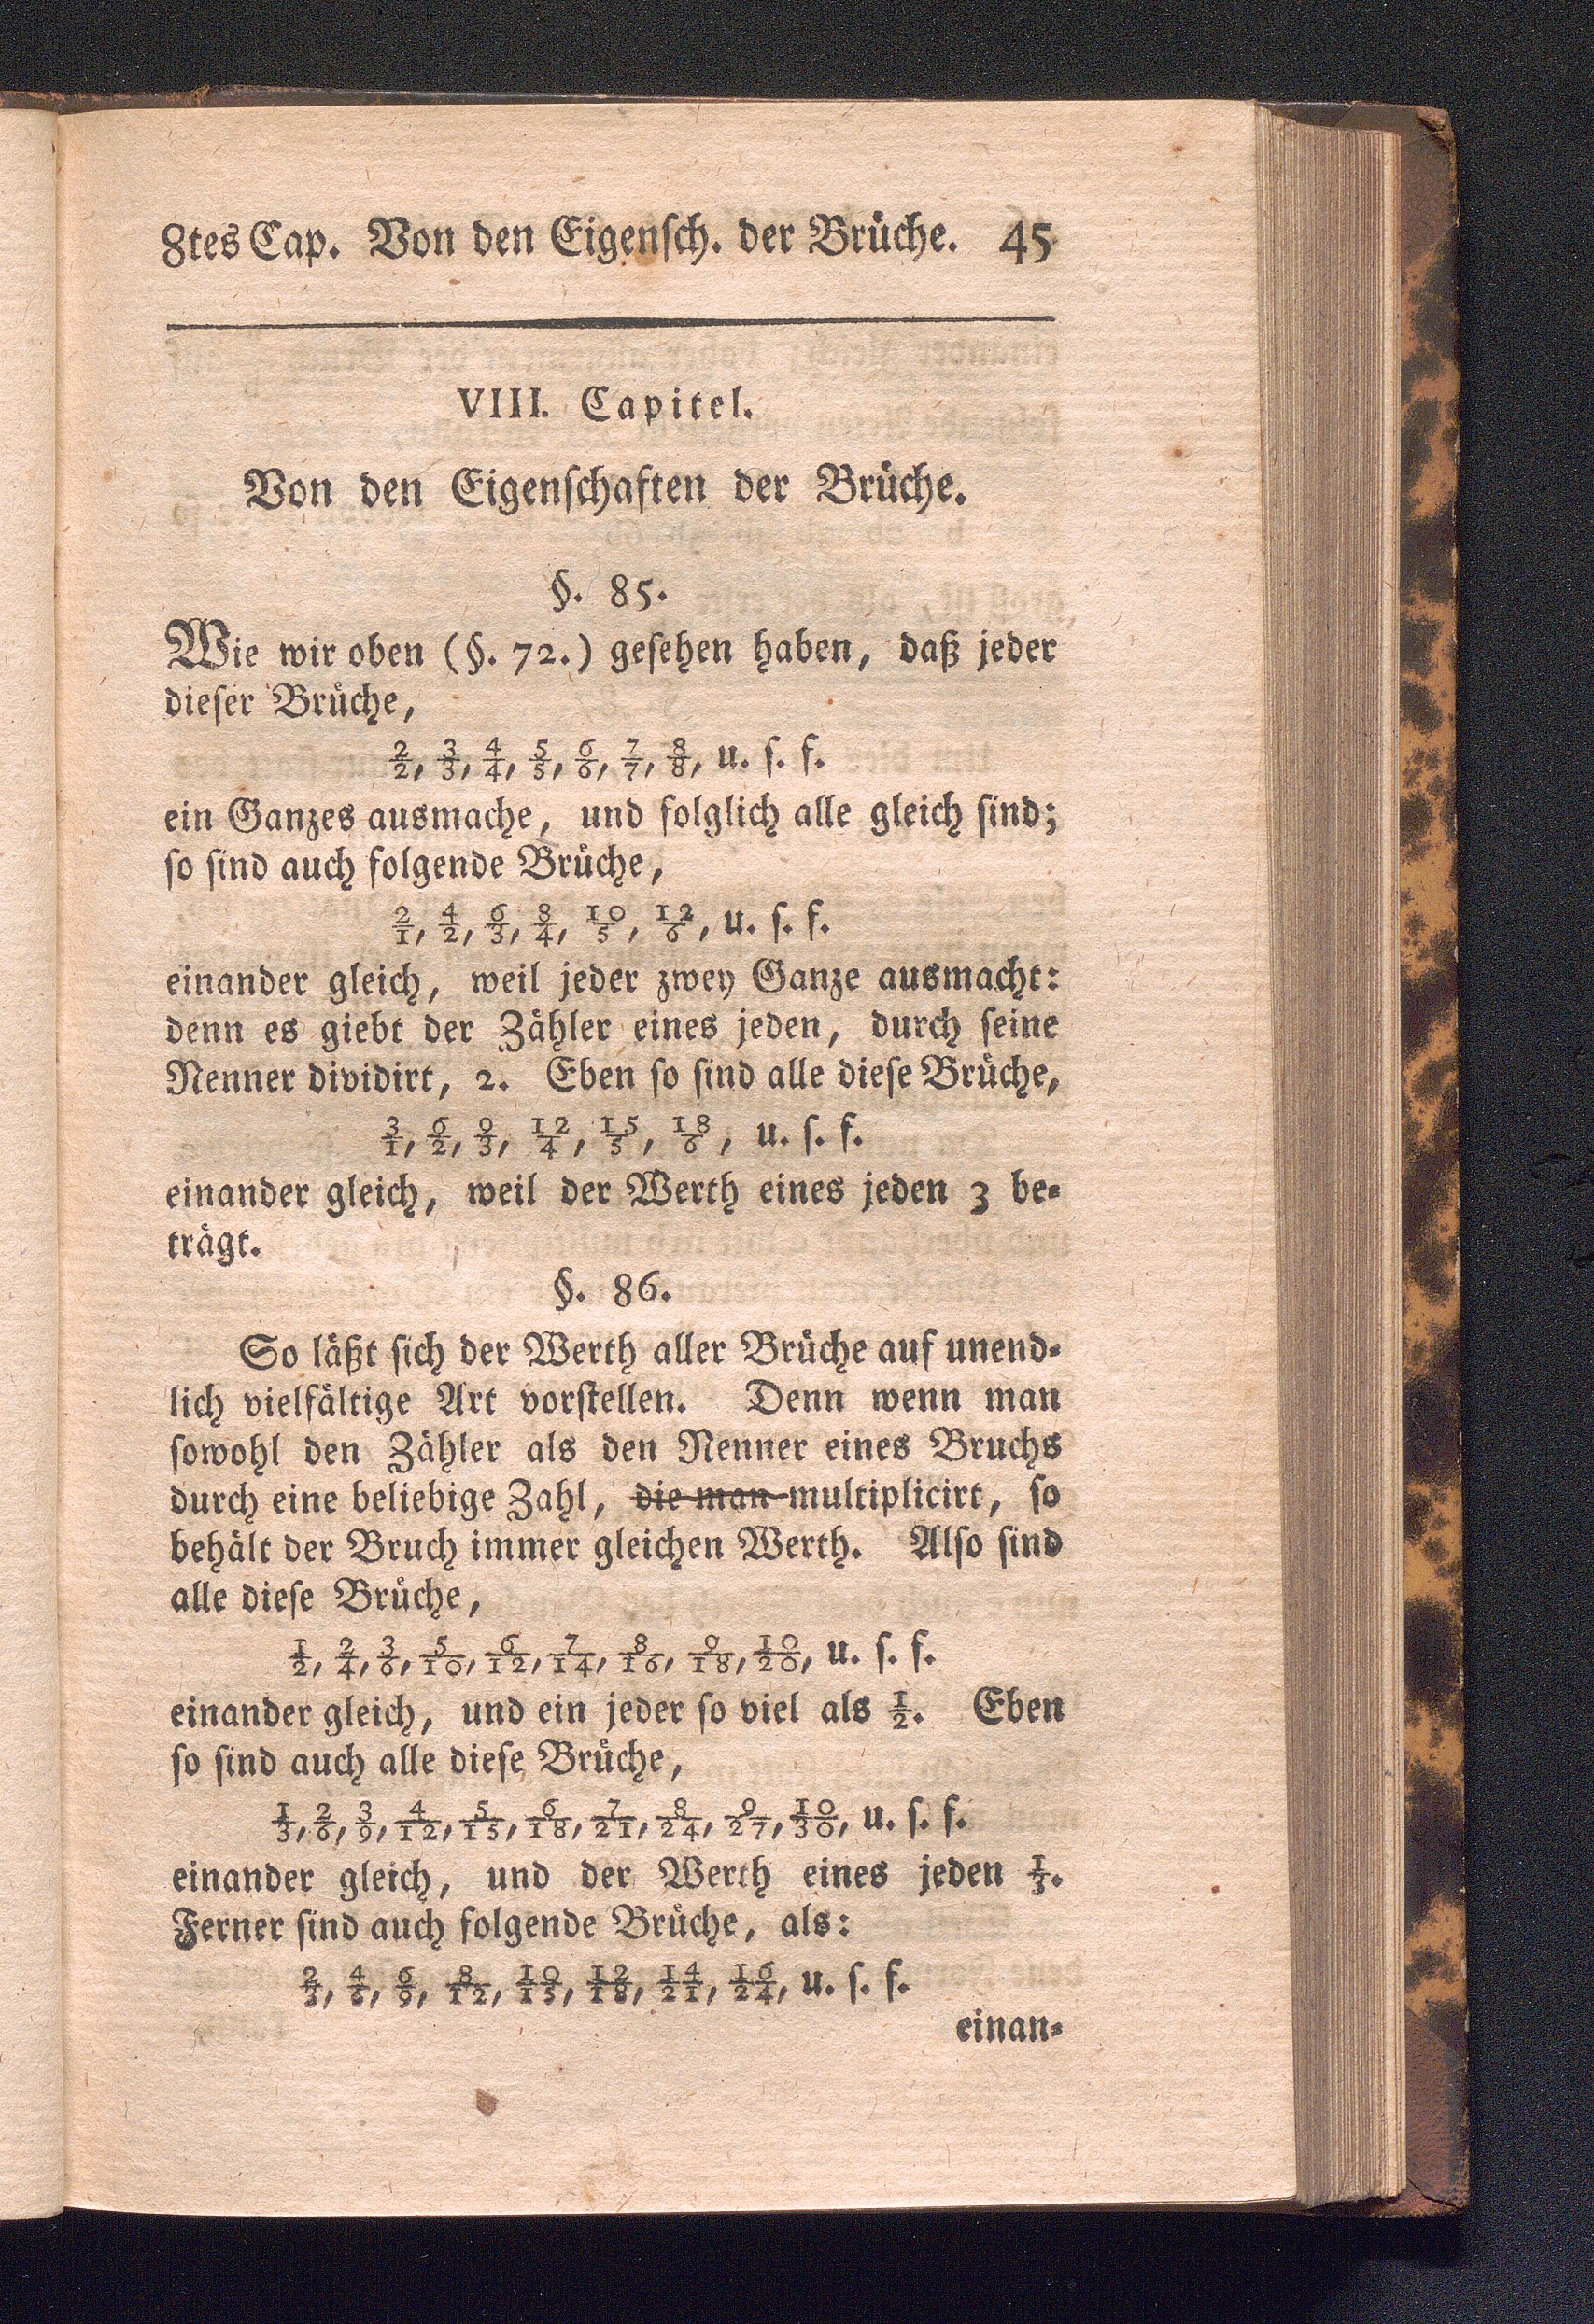 8tes Cap. Von den Eigenſch. der Brüche. 45
VIII. Capitel.
Von den Eigenſchaften der Brüche.
§. 85.
Wie wir oben (§. 72.) geſehen haben, daß jeder
dieſer Brüche,
2/2, 3/3, 4/4, 5/5, 6/6, 7/7, 8/8, u. ſ. f.
ein Ganzes ausmache, und folglich alle gleich ſind;
ſo ſind auch folgende Brüche,
2/1, 4/2, 6/3, 8/4, 10/5, 12/6, u. ſ. f.
einander gleich, weil jeder zwey Ganze ausmacht:
denn es giebt der Zähler eines jeden, durch ſeine
Nenner dividirt, 2. Eben ſo ſind alle dieſe Brüche,
3/1, 6/2, 9/3, 12/4, 15/5, 18/6, u. ſ. f.
einander gleich, weil der Werth eines jeden 3 be-
trägt.
§. 86.
So läßt ſich der Werth aller Brüche auf unend-
lich vielfältige Art vorſtellen. Denn wenn man
ſowohl den Zähler als den Nenner eines Bruchs
durch eine beliebige Zahl, die man multiplicirt, ſo
behält der Bruch immer gleichen Werth. Alſo ſind
alle dieſe Brüche,
1/2, 2/4, 3/6, 5/10, 6/12, 7/14, 8/16, 9/18, 10/20, u. ſ. f.
einander gleich, und ein jeder ſo viel als 1/2. Eben
ſo ſind auch alle dieſe Brüche,
1/3, 2/6, 3/9, 4/12, 5/15, 6/18, 7/21, 8/24, 9/27, 10/30, u. ſ. f.
einander gleich, und der Werth eines jeden 1/3.
Ferner ſind auch folgende Brüche, als:
2/3, 4/6, 6/9, 8/12, 10/15, 12/18, 14/21, 16/24, u. ſ. f.
einan-